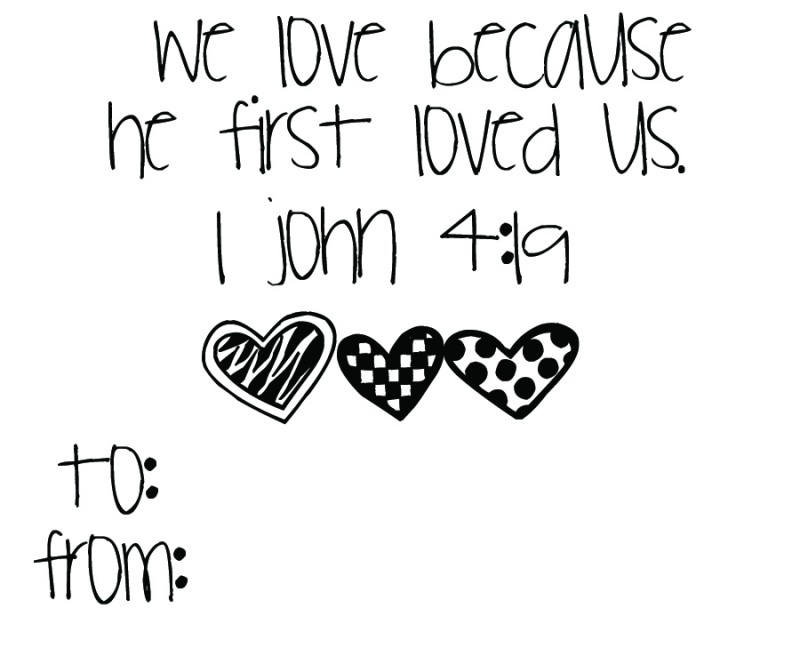 we love because
he first loved us.
1 john 4:19
to:
from: